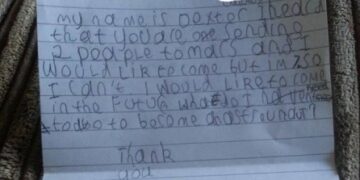 my name is Dexter I heard
that you are sending
2 people to mars and I
would like to come but im 7 so
I can't I would like to come
in the future what do I need
to do to become an astronaut?
Thank
you